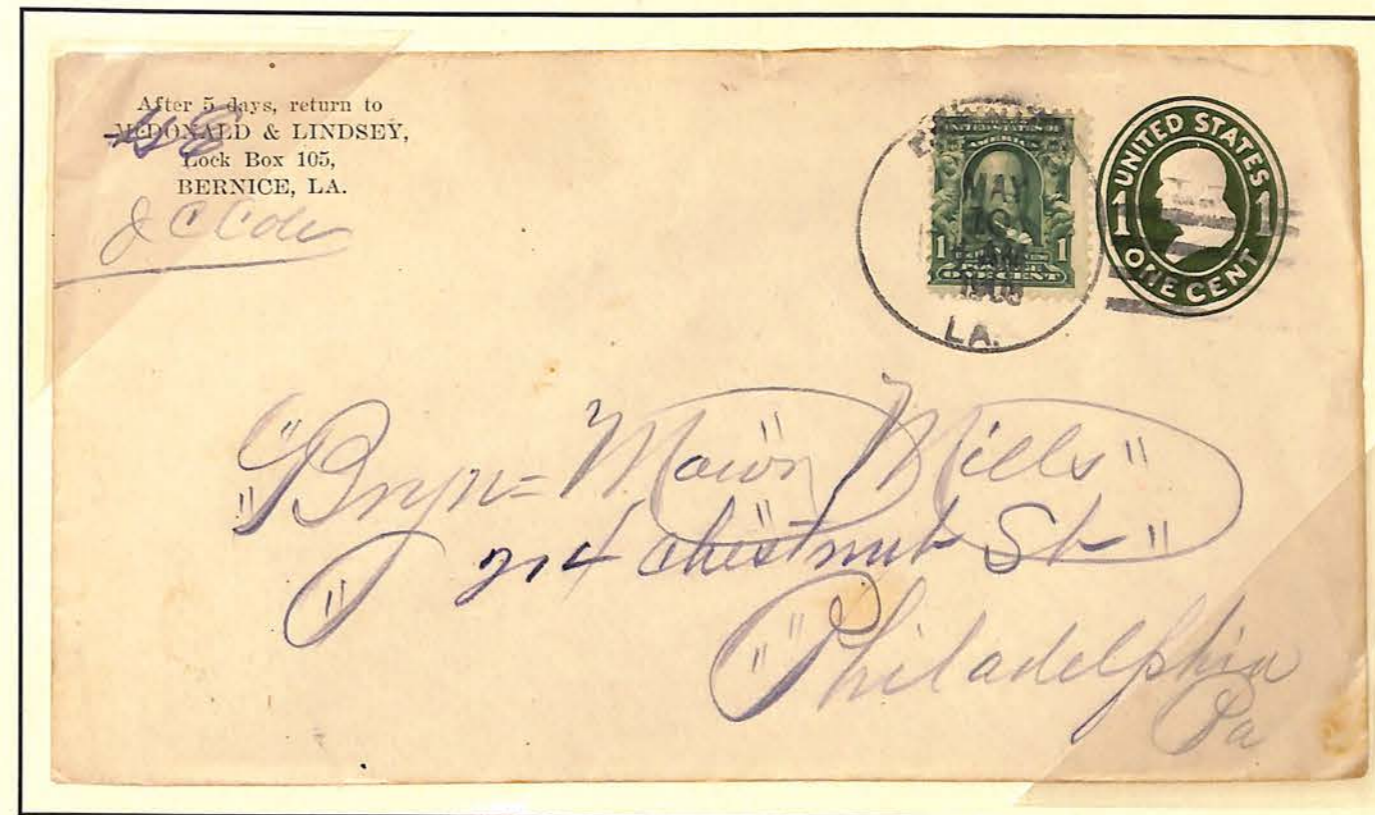 After 5 days, return to
McDONALD & LINDSEY,
Lock Box 105,
BERNICE, LA.
J C Cole
UNITED STATES OF
AMERICA
1 1
ONE CENT
MAY
10
AM
LA.
UNITED STATES
1 1
ONE CENT
"Bryn= Mawr" Mills"
" 214 Chestnut St "
"Philadelphia
Pa